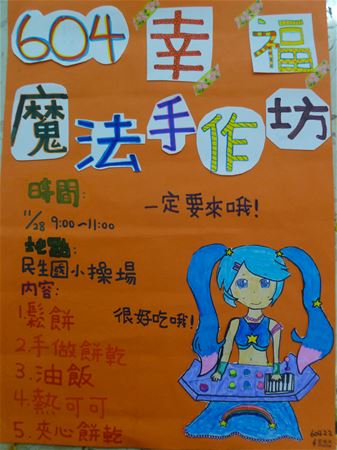 604幸福
魔法手作坊
時間:
11/28 9:00~11:00
一定要來哦!
地點:
民生國小操場
内容:
1.鬆餅
很好吃哦!
2.手做餅乾
3.油飯
4.熱可可
5.夾心餅乾
60422